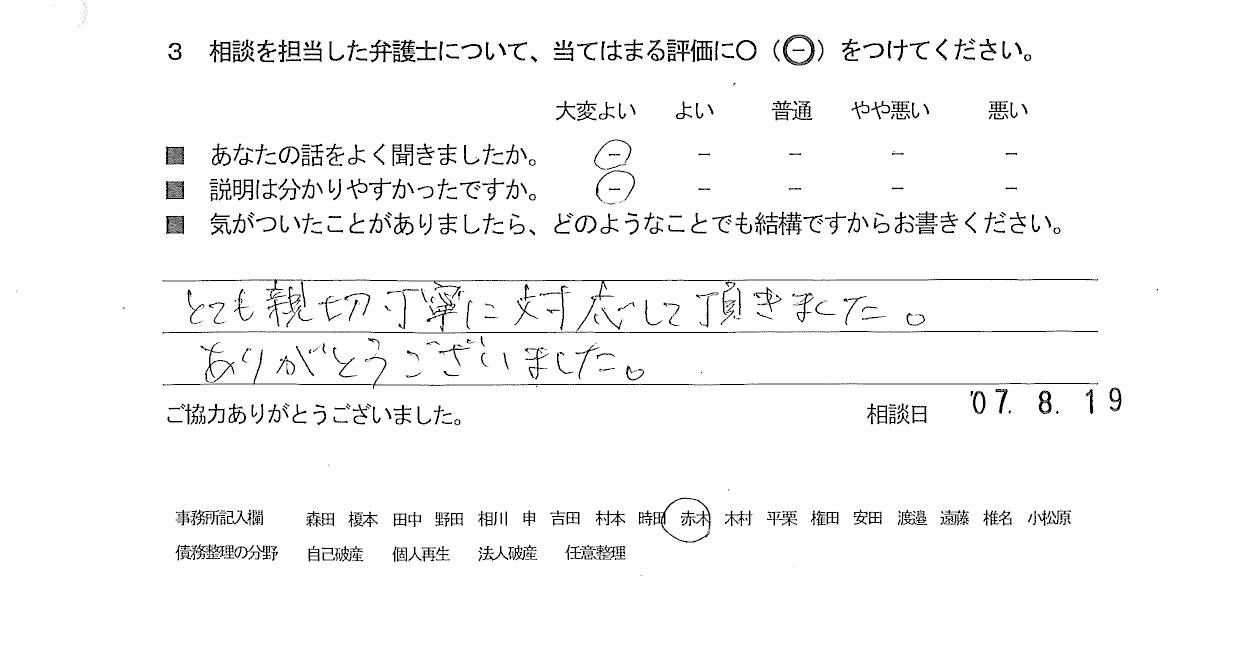 3 相談を担当した弁護士について、当てはまる評価に〇（㊀）をつけてください。
大変よい よい 普通 やや悪い 悪い
■ あなたの話をよく聞きましたか。 － － － － －
■ 説明は分かりやすかったですか。 － － － － －
■ 気がついたことがありましたら、どのようなことでも結構ですからお書きください。
とても親切丁寧に対応して頂きました。
ありがとうございました。
ご協力ありがとうございました。 相談日 '07. 8. 19
事務所記入欄 森田 榎本 田中 野田 相川 申 吉田 村本 時田 赤木 木村 平栗 権田 安田 渡邉 遠藤 椎名 小松原
債務整理の分野 自己破産 個人再生 法人破産 任意整理